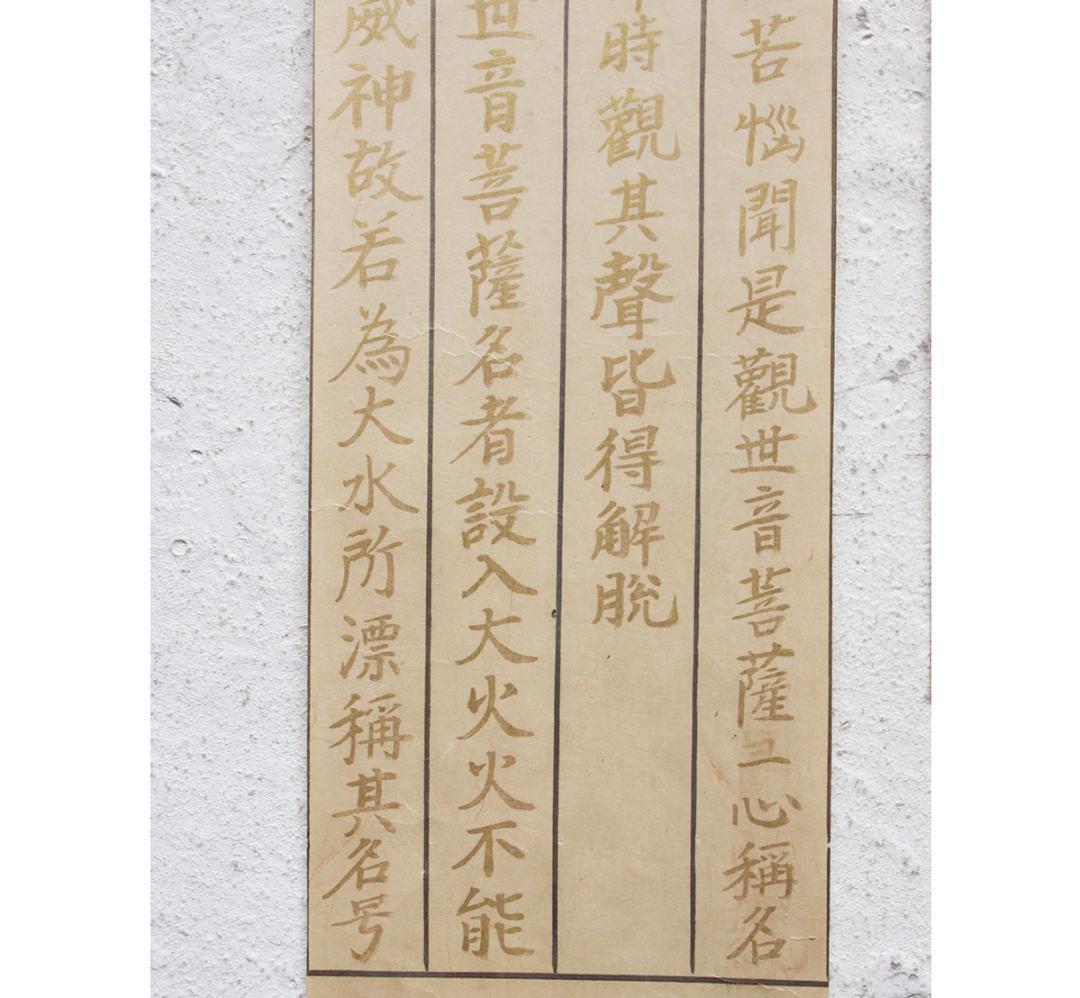 苦惱聞是觀世音菩薩一心稱名
時觀其聲皆得解脫
世音菩薩名者設入大火火不能
威神故若為大水所漂稱其名号